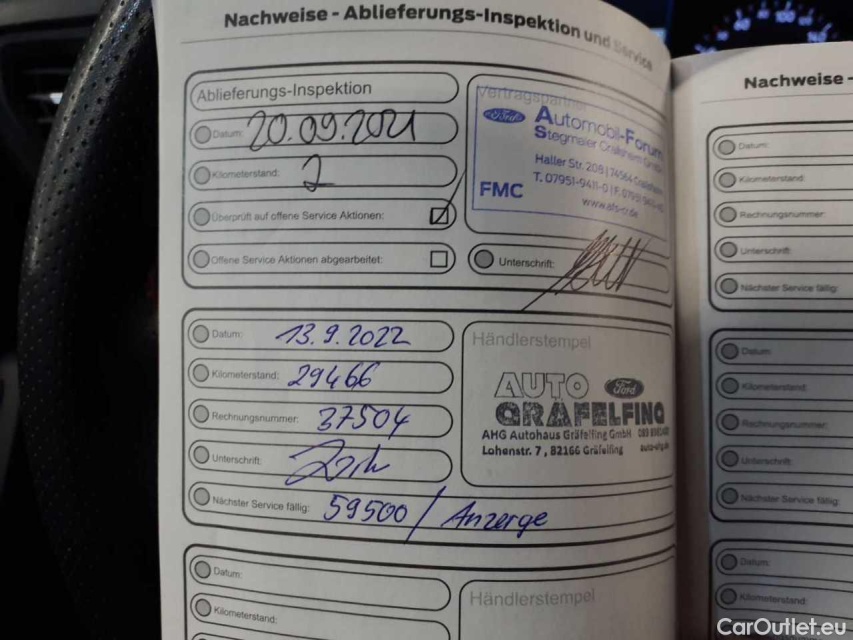 Nachweise - Ablieferungs-Inspektion und Service
Ablieferungs-Inspektion
Datum: 20.09.2021
Kilometerstand: 2
Überprüft auf offene Service Aktionen:
Offene Service Aktionen abgearbeitet:
Vertragspartner
Ford Automobil-Forum
Stegmaier Crailsheim GmbH
Haller Str. 208 | 74564 Crailsheim
T. 07951-9411-0 | F. 07951
FMC
www.afs-cr.de
Unterschrift:
Datum: 13.9.2022
Kilometerstand: 29466
Rechnungsnummer: 37504
Unterschrift:
Nächster Service fällig: 59500 / Anzerge
Händlerstempel
AUTO Ford
GRÄFELFING
AHG Autohaus Gräfelfing GmbH
Lohenstr. 7, 82166 Gräfelfing
Datum:
Kilometerstand:
Händlerstempel
Nachweise -
Datum:
Kilometerstand:
Rechnungsnummer:
Unterschrift:
Nächster Service fällig:
Datum:
Kilometerstand:
Rechnungsnummer:
Unterschrift:
Nächster Service fällig:
Datum:
Kilometerstand:
100
140
CarOutlet.eu